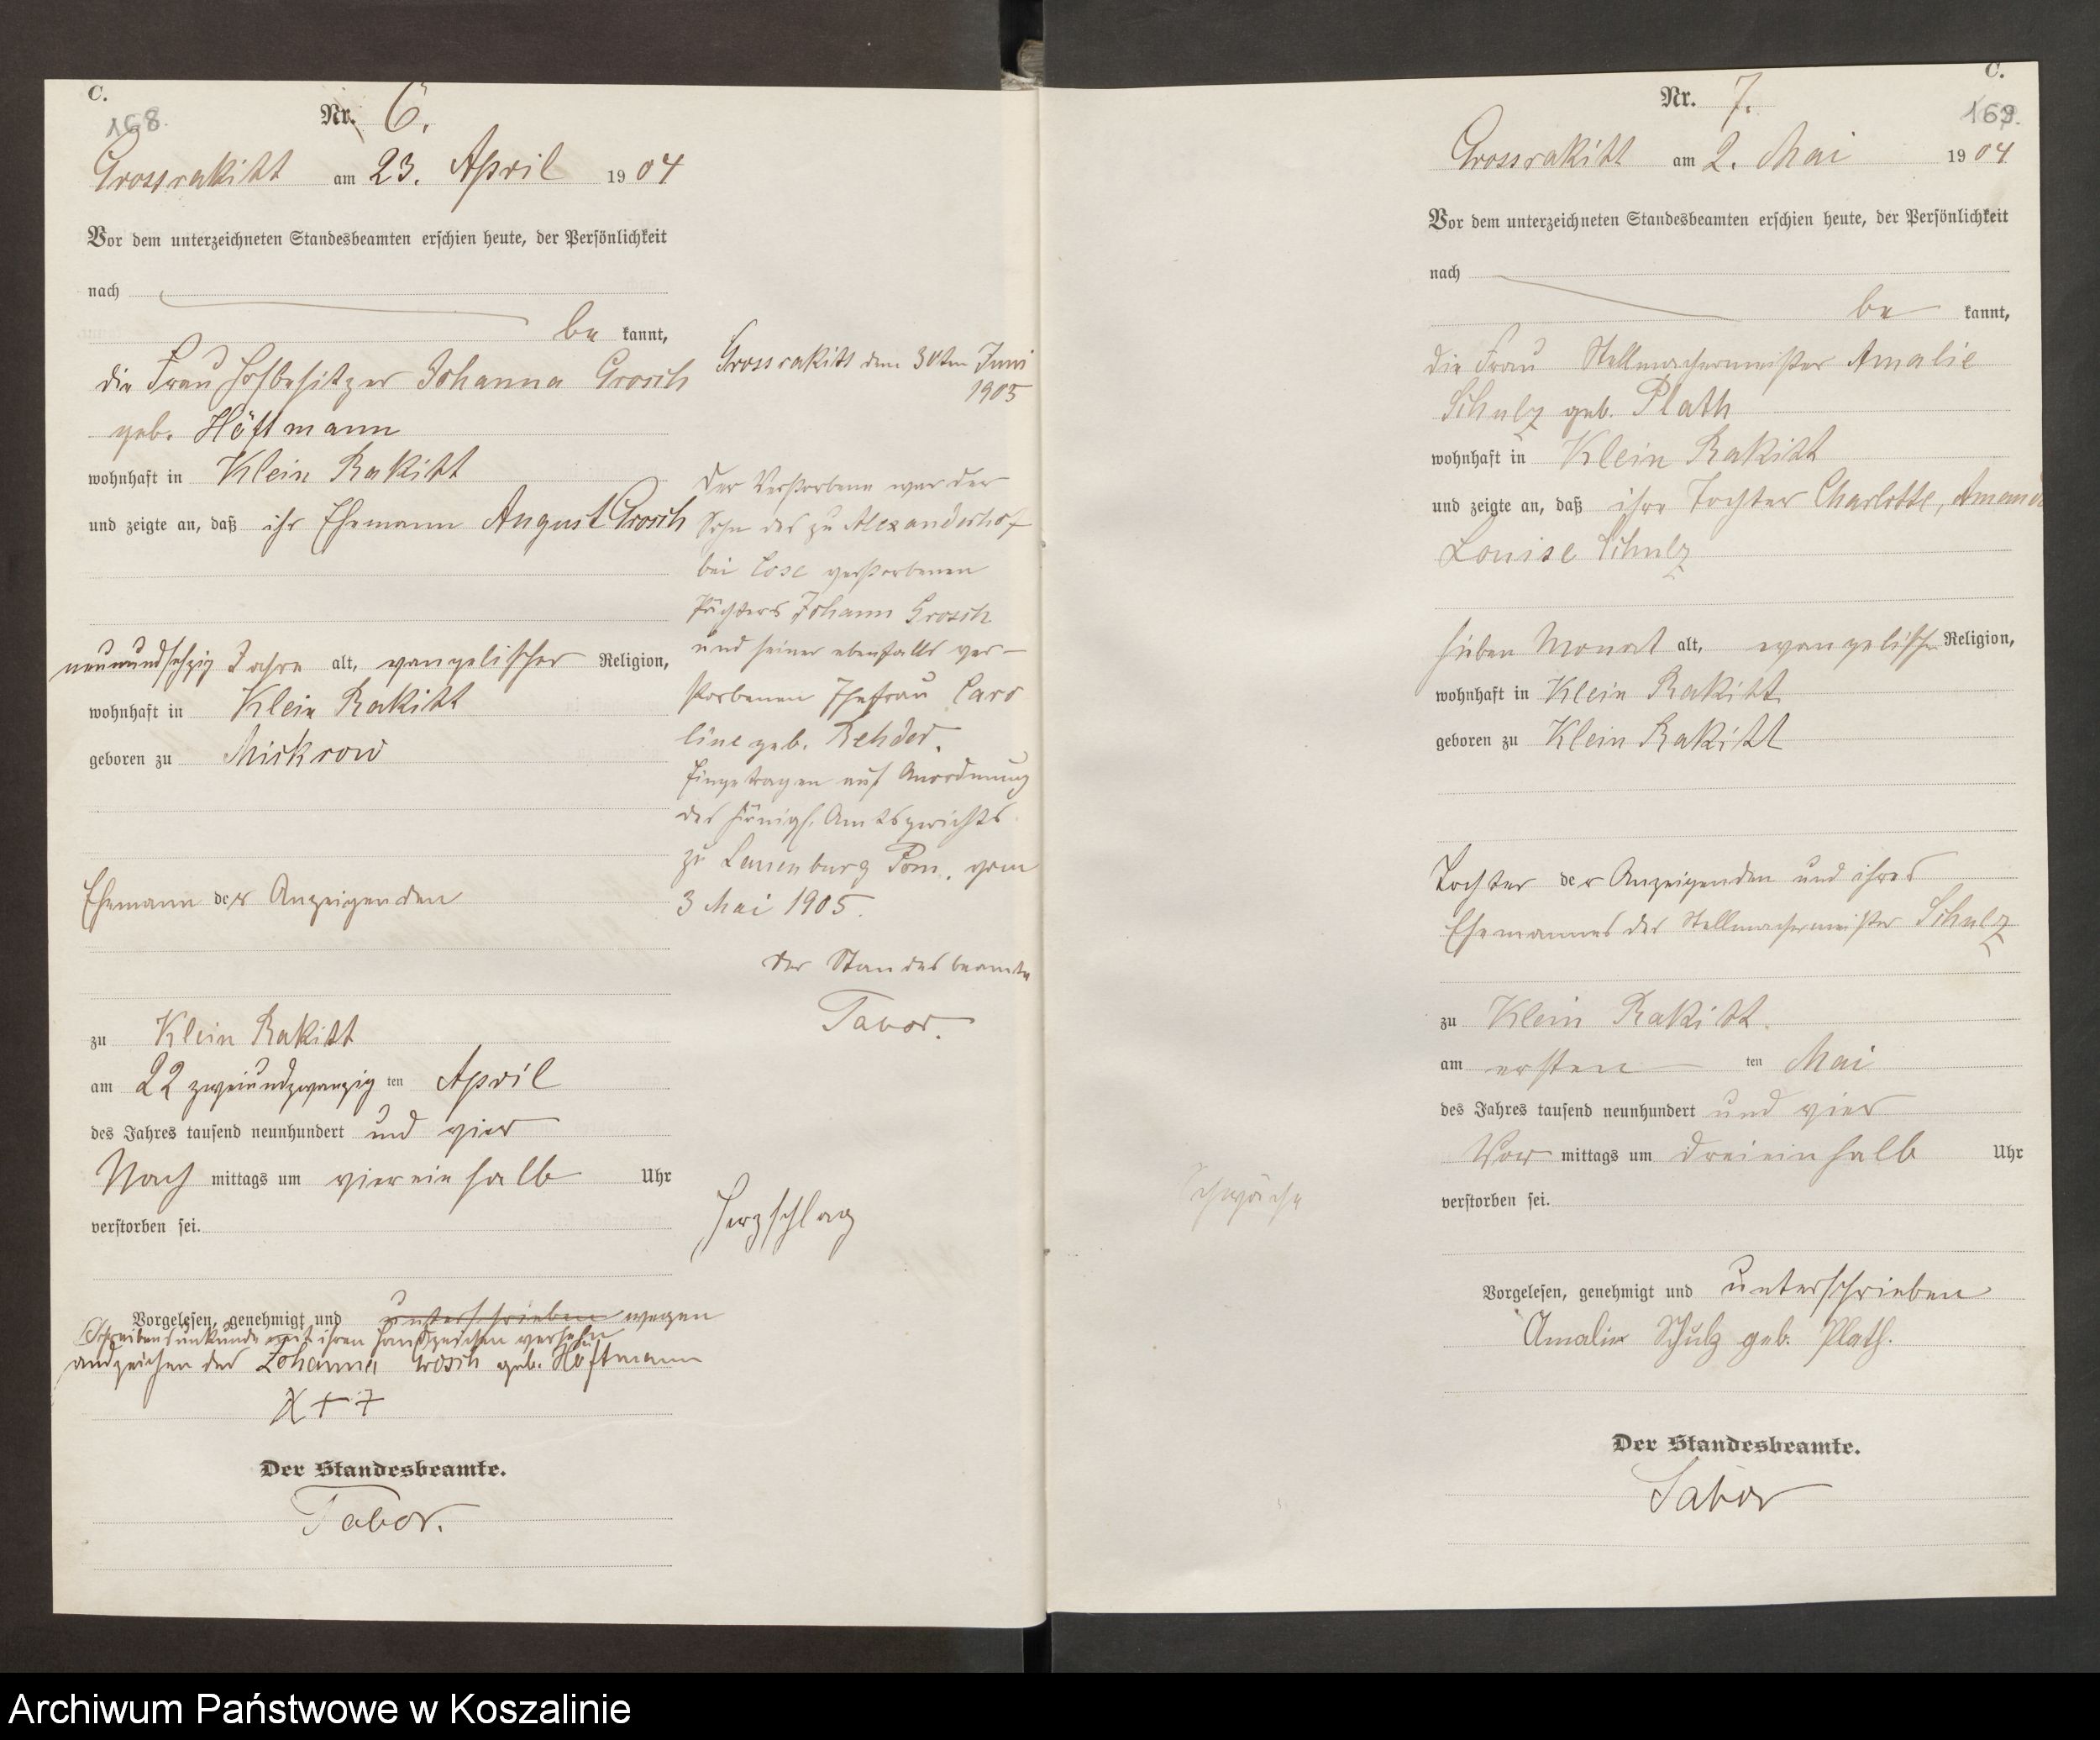 C.
168.
Nr. 6.
Grossrakitt am 23. April 1904
Vor dem unterzeichneten Standesbeamten erschien heute, der Persönlichkeit
nach
be kannt,
die Frau Hofbesitzer Johanna Grosch
geb. Höftmann
wohnhaft in Klein Rakitt
und zeigte an, daß ihr Ehemann August Grosch
neunundsechzig Jahre alt, evangelischer Religion,
wohnhaft in Klein Rakitt
geboren zu Mickrow
Ehemann der Anzeigenden
zu Klein Rakitt
am 22 zweiundzwanzig ten April
des Jahres tausend neunhundert und vier
Nach mittags um viereinhalb Uhr
verstorben sei.
Vorgelesen, genehmigt und unterschrieben wegen
Schreibensunkunde mit ihren Handzeichen versehen
andzeichen der Johanna Grosch geb. Höftmann
X + +
Der Standesbeamte.
Tabor.
Grossrakitt den 30ten Juni
1905
Der Verstorbene war der
Sohn des zu Alexanderhof
bei Lose verstorbenen
Pächters Johann Grosch
und seiner ebenfalls ver-
storbenen Ehefrau Caro
line geb. Rehder.
Eingetragen auf Anordnung
des Königl. Amtsgerichts
zu Lauenburg Pom. vom
3 Mai 1905.
Der Standesbeamte
Tabor.
Herzschlag
C.
169.
Nr. 7.
Grossrakitt am 2. Mai 1904
Vor dem unterzeichneten Standesbeamten erschien heute, der Persönlichkeit
nach
be kannt,
die Frau Stellmachermeister Amalie
Schulz geb. Plath
wohnhaft in Klein Rakitt
und zeigte an, daß ihre Tochter Charlotte, Amanda
Louise Schulz
sieben Monat alt, evangelischer Religion,
wohnhaft in Klein Rakitt
geboren zu Klein Rakitt
Tochter der Anzeigenden und ihres
Ehemannes des Stellmachermeister Schulz
zu Klein Rakitt.
am ersten ten Mai
des Jahres tausend neunhundert und vier
Vor mittags um dreieinhalb Uhr
verstorben sei.
Schwäche
Vorgelesen, genehmigt und unterschrieben
Amalie Schulz geb. Plath.
Der Standesbeamte.
Tabor
Archiwum Państwowe w Koszalinie